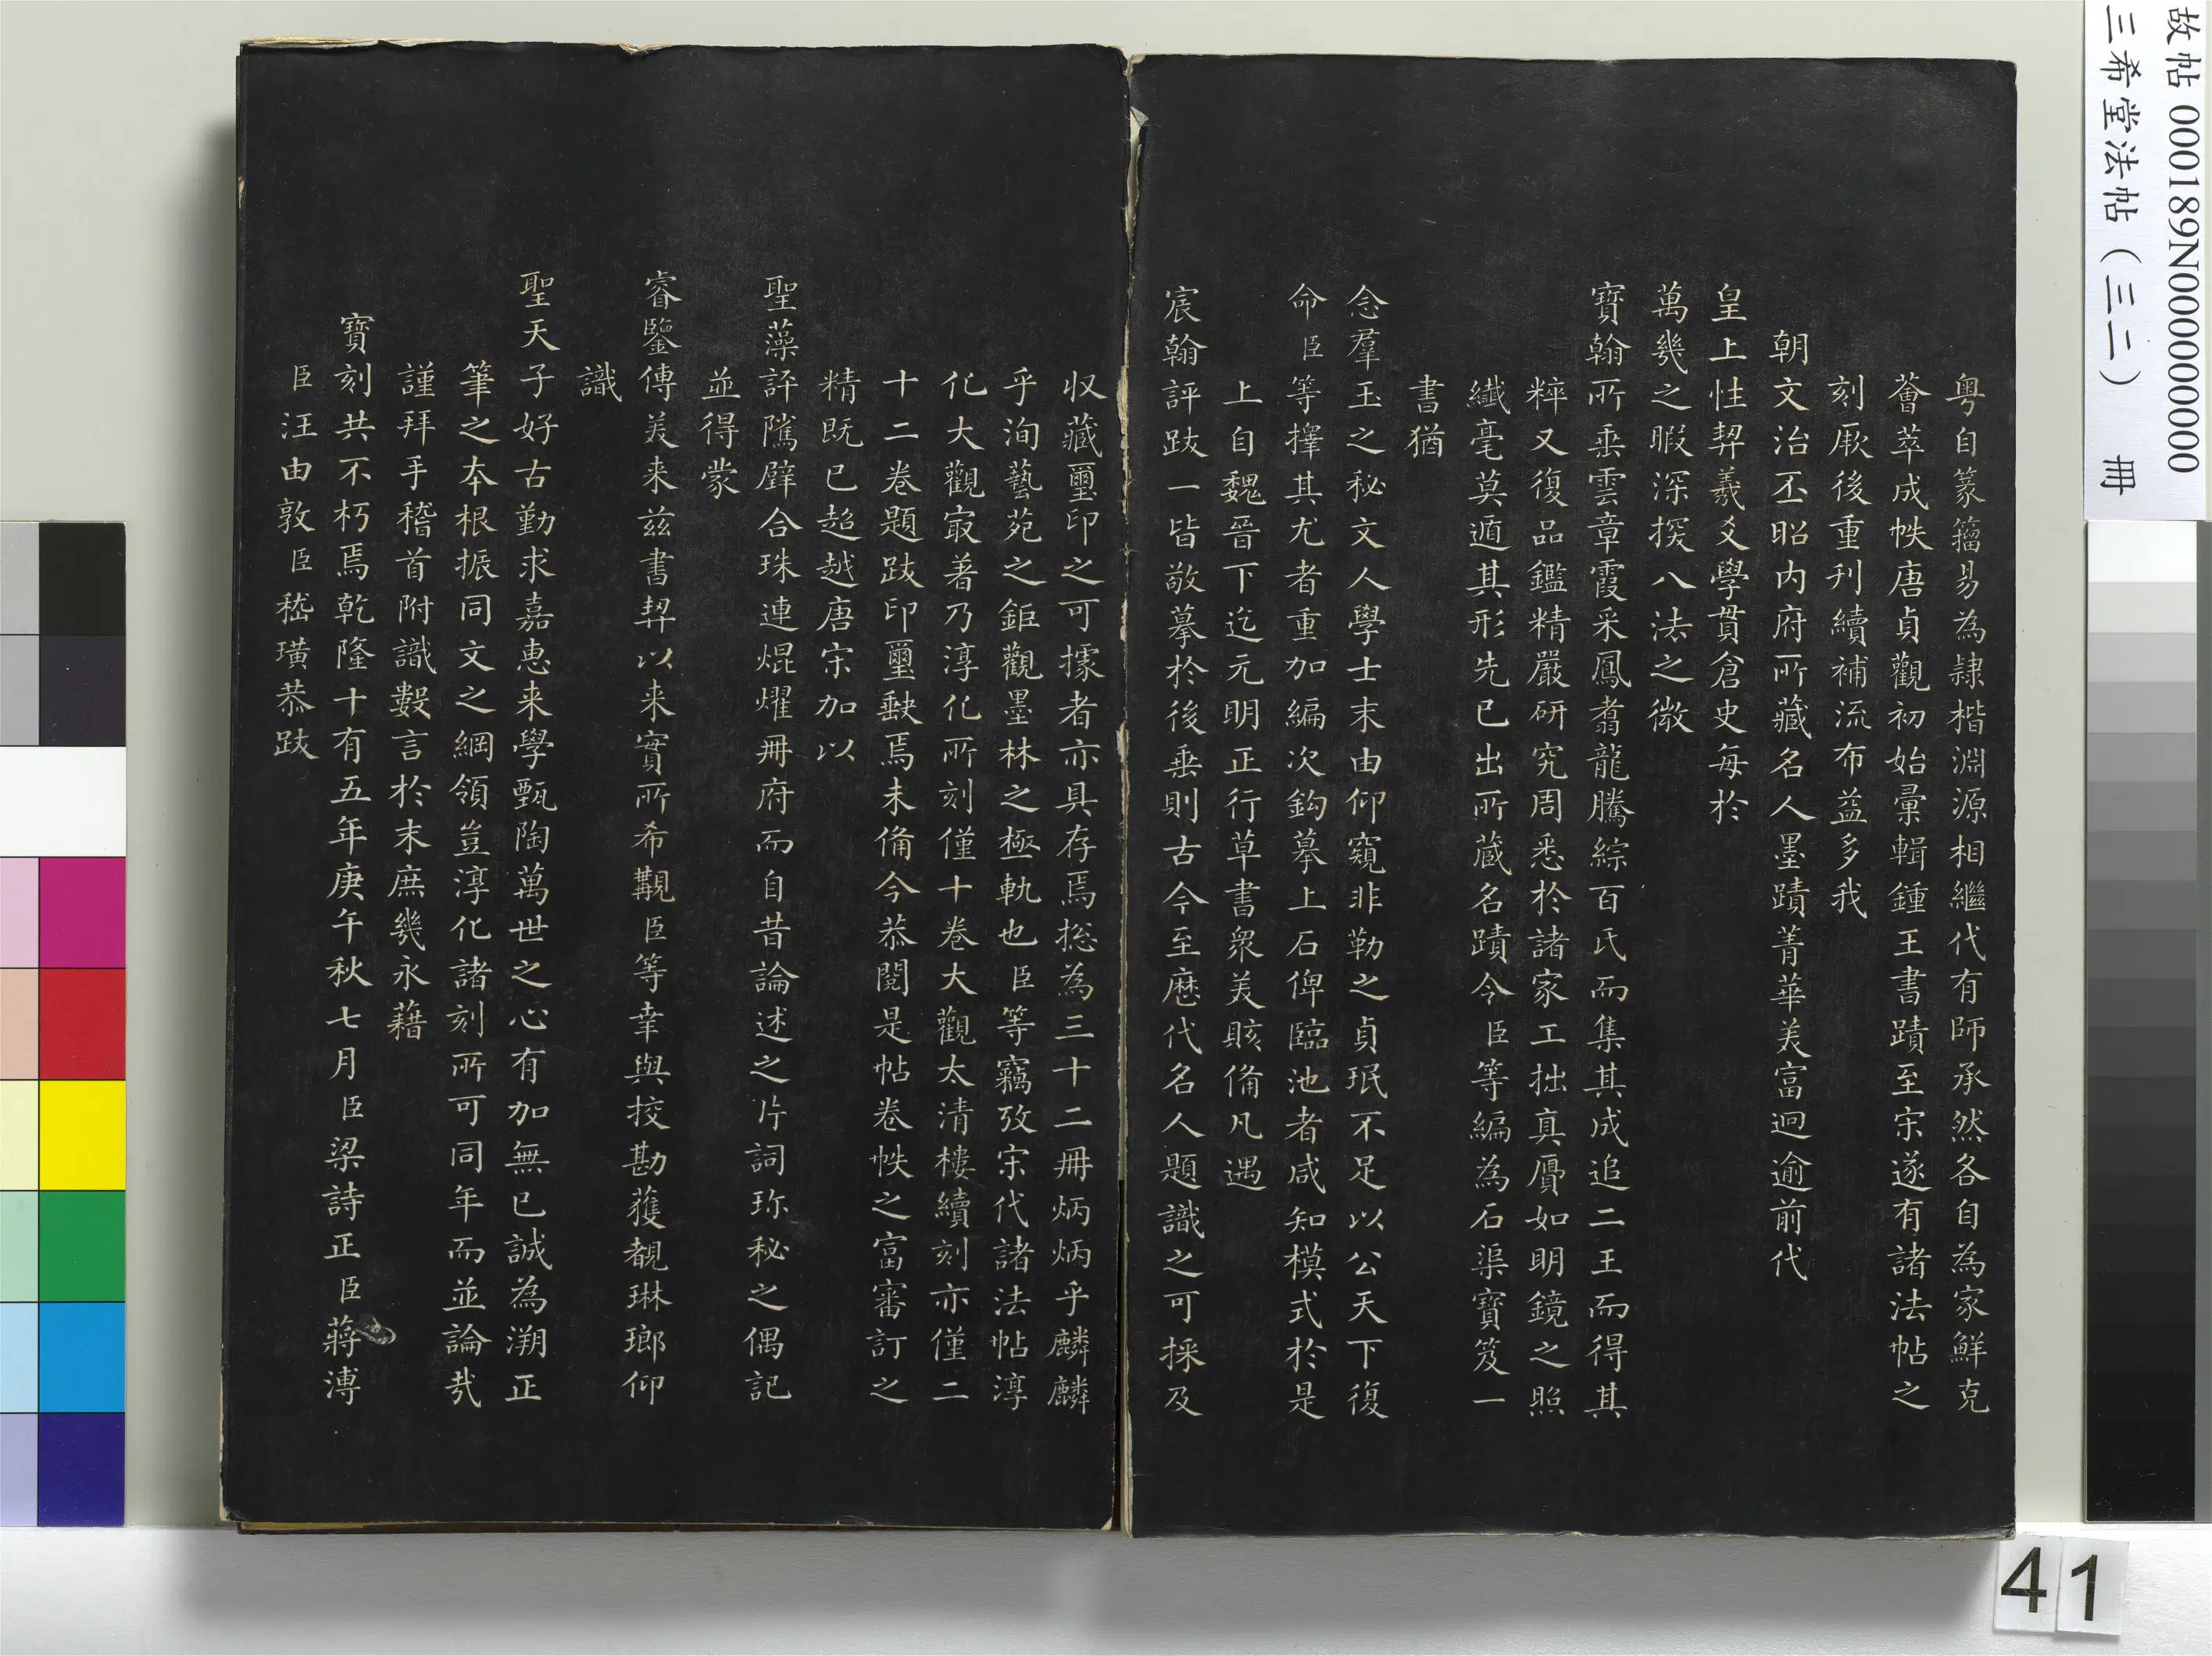 粤自篆籀易為隷楷淵源相繼代有師承然各自為家鮮克
薈萃成帙唐貞觀初始彙輯鍾王書蹟至宋遂有諸法帖之
刻厥後重刋續補流布益多我
朝文治丕昭内府所藏名人墨蹟菁華美富迥逾前代
皇上性契羲爻學貫倉史每於
萬幾之暇深探八法之微
寳翰所垂雲章霞采鳳翥龍騰綜百氏而集其成追二王而得其
粹又復品鑑精嚴研究周悉於諸家工拙真贗如明鏡之照
纎毫莫遁其形先已出所蔵名蹟令臣等編為石渠寳笈一
書猶
念羣玉之秘文人學士末由仰窺非勒之貞珉不足以公天下復
命臣等擇其尤者重加編次鈎摹上石俾臨池者咸知模式於是
上自魏晉下迄元明正行草書衆美賅俻凡遇
宸翰評跋一皆敬摹於後垂則古今至歴代名人題識之可採及
収藏璽印之可據者亦具存焉揔為三十二冊炳炳乎麟麟
乎洵藝苑之鉅觀墨林之極軌也臣等竊攷宋代諸法帖淳
化大觀㝡著乃淳化所刻僅十卷大觀太清樓續刻亦僅二
十二卷題跋印璽缺焉未俻今恭閱是帖卷帙之富審訂之
精既已超越唐宋加以
聖藻評隲璧合珠連焜燿冊府而自昔論述之片詞珎秘之偶記
並得蒙
睿鑒傳美来兹書契以来實所希覯臣等幸與挍勘蒦覩琳瑯仰
識
聖天子好古勤求嘉惠来學甄陶萬世之心有加無已誠為溯正
筆之本根振同文之綱領豈淳化諸刻所可同年而並論㢤
謹拜手稽首附識數言於末庶幾永藉
寳刻共不朽焉乾隆十有五年庚午秋七月臣梁詩正臣蔣溥
臣汪由敦臣嵇璜恭跋
故帖 000189N000000000
三希堂法帖（三二） 冊
41